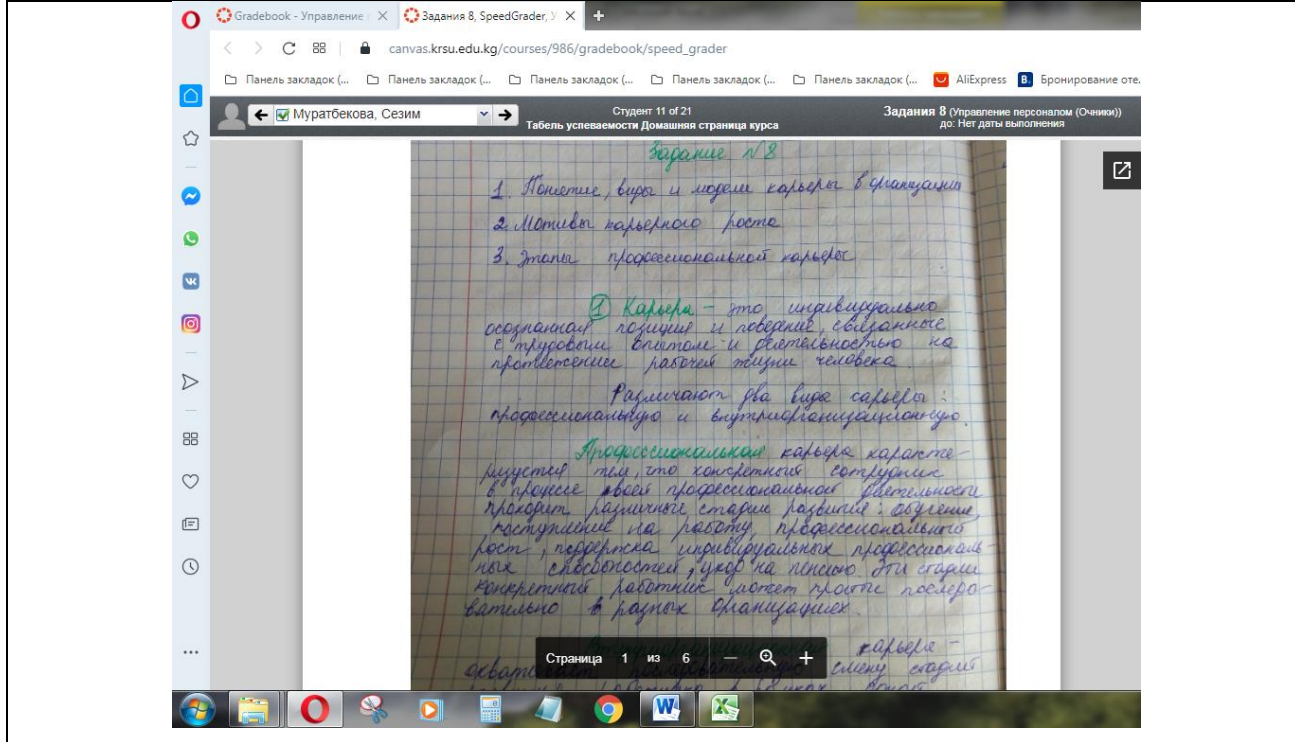 Gradebook - Управление
Задания 8, SpeedGrader, У
canvas.krsu.edu.kg/courses/986/gradebook/speed_grader
Панель закладок (... Панель закладок (... Панель закладок (... Панель закладок (... Панель закладок (... AliExpress B. Бронирование оте.
Муратбекова, Сезим
Студент 11 of 21
Табель успеваемости Домашняя страница курса
Задания 8 (Управление персоналом (Очники))
до: Нет даты выполнения
Задание №8
1. Понятие, виды и модели карьеры в организации
2. Мотивы карьерного роста
3. Этапы профессиональной карьеры
1 Карьера – это индивидуально
осознанная позиция и поведение, связанные
с трудовым опытом и деятельностью на
протяжении рабочей жизни человека.
Различают два вида карьеры:
профессиональную и внутриорганизационную.
Профессиональная карьера характе-
ризуется тем, что конкретный сотрудник
в процессе своей профессиональной деятельности
проходит различные стадии развития: обучение,
поступление на работу, профессиональный
рост, поддержка индивидуальных профессиональ-
ных способностей, уход на пенсию. Эти стадии
конкретный работник может пройти последо-
вательно в разных организациях.
карьера –
смену стадий
Страница 1 из 6